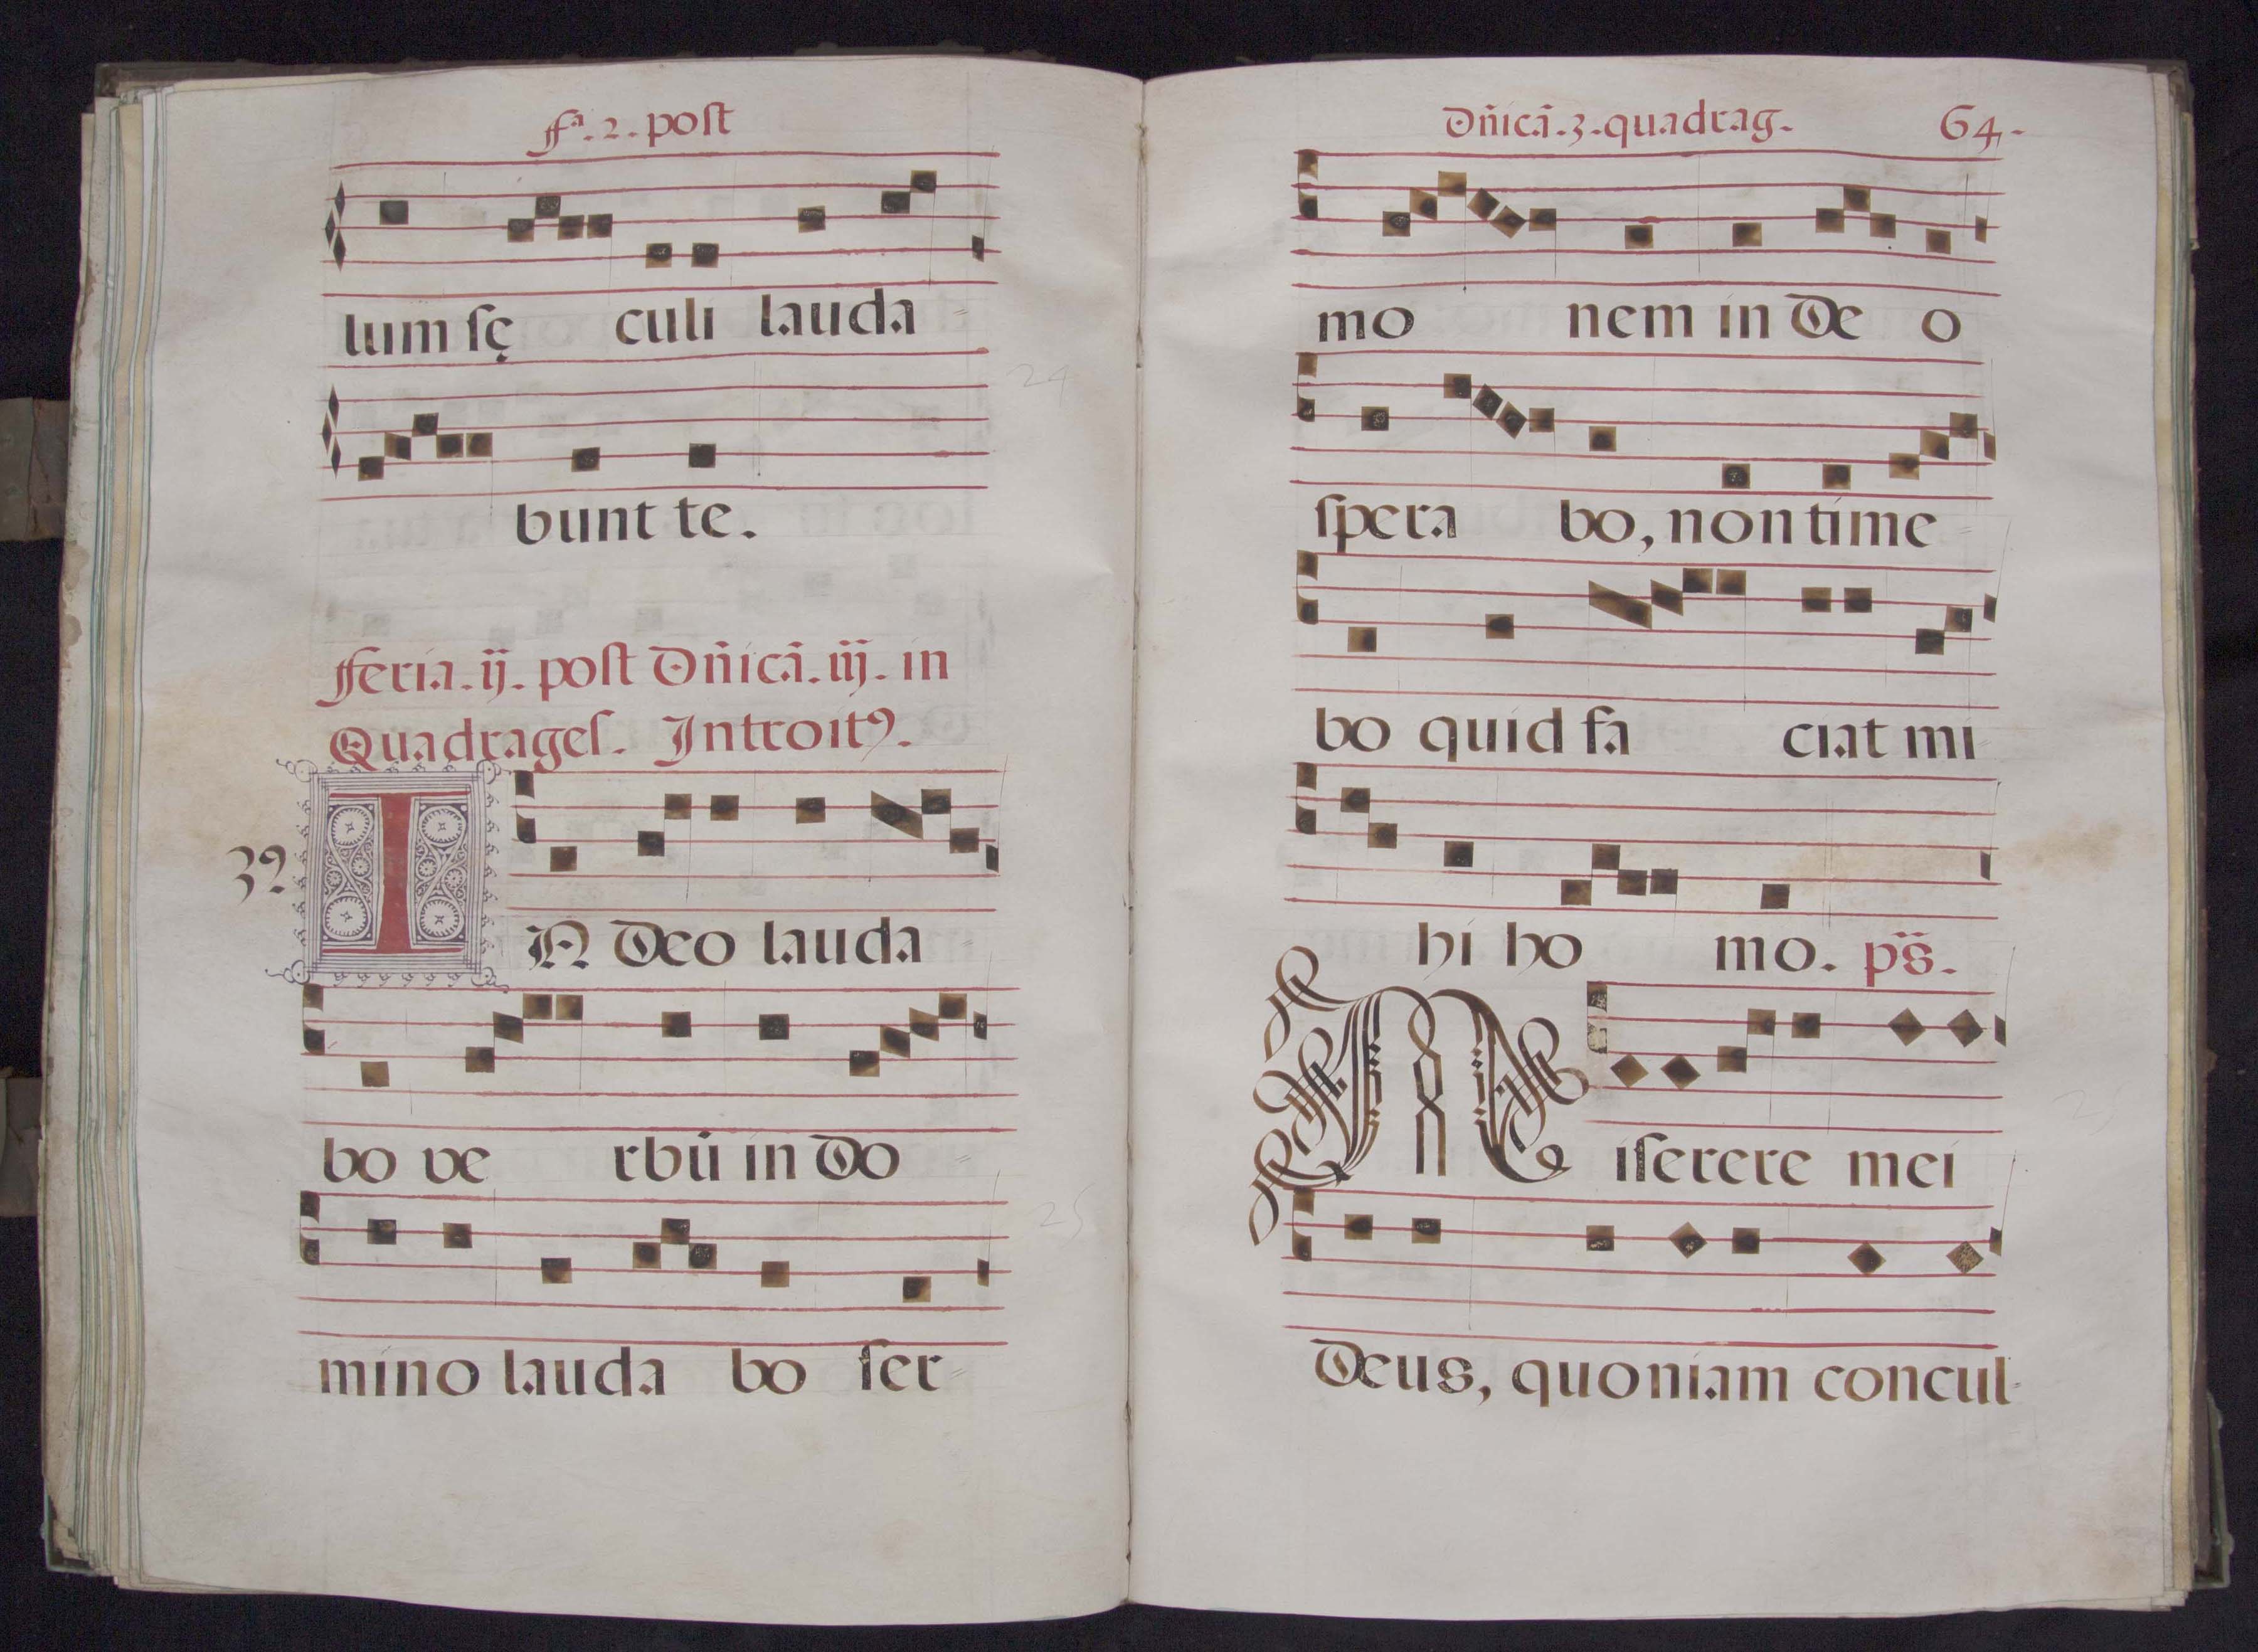 ffª. 2. post
lum sę culi lauda=
24
bunt te.
fferia. ij. post Dñicã. iij. in
Quadrages. Introitꝰ.
32
IN Deo lauda
bo ve rbū in Do=
25
mino lauda bo ser=
Dñicã. 3. quadrag. 64.
mo nem in De o
spera bo, non time=
bo quid fa ciat mi=
hi ho mo. ps̈.
Miserere mei
Deus, quoniam concul=